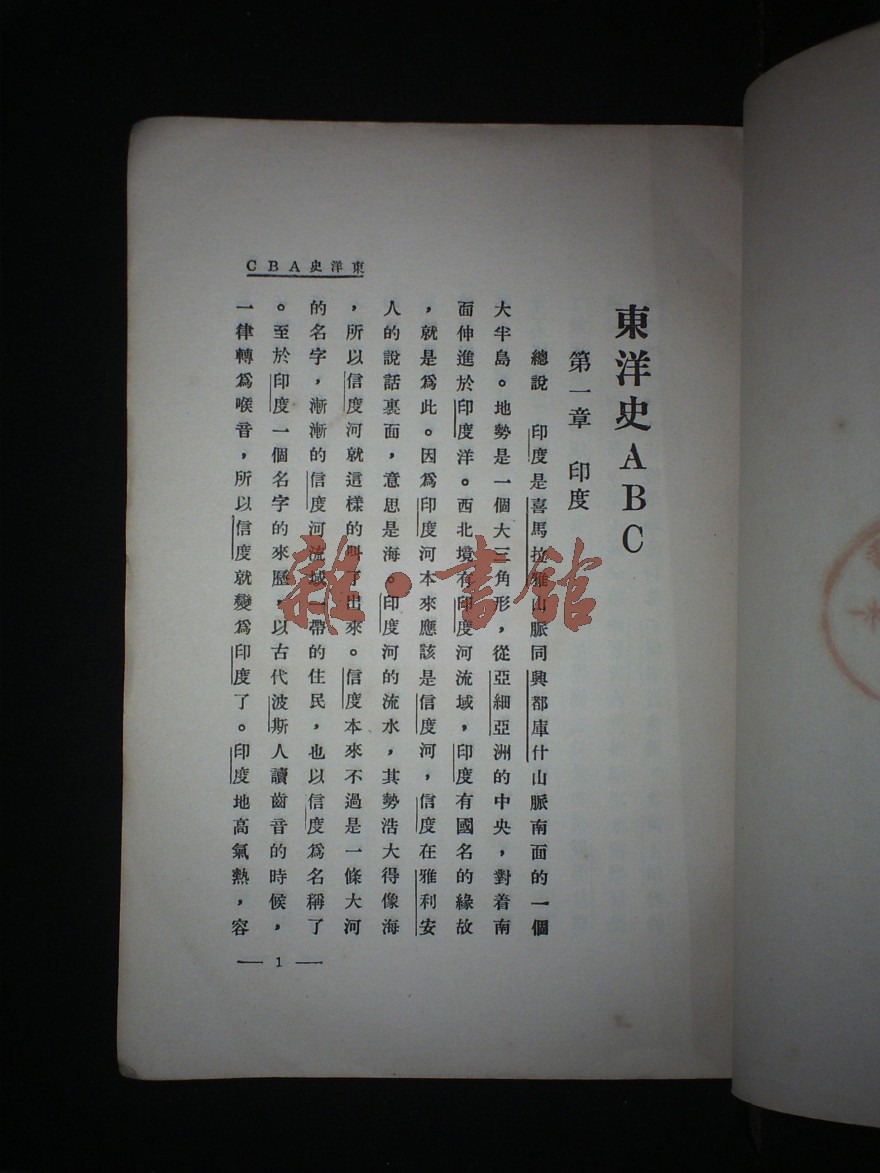 東洋史ABC
東洋史ABC
第一章 印度
總說 印度是喜馬拉雅山脈同興都庫什山脈南面的一個
大半島。地勢是一個大三角形，從亞細亞洲的中央，對着南
面伸進於印度洋。西北境有印度河流域，印度有國名的緣故
，就是爲此。因爲印度河本來應該是信度河，信度在雅利安
人的說話裏面，意思是海。印度河的流水，其勢浩大得像海
，所以信度河就這樣的叫了出來。信度本來不過是一條大河
的名字，漸漸的信度河流域一帶的住民，也以信度爲名稱了
。至於印度一個名字的來歷，以古代波斯人讀齒音的時候，
一律轉爲喉音，所以信度就變爲印度了。印度地高氣熱，容
— 1 —
雜·書館